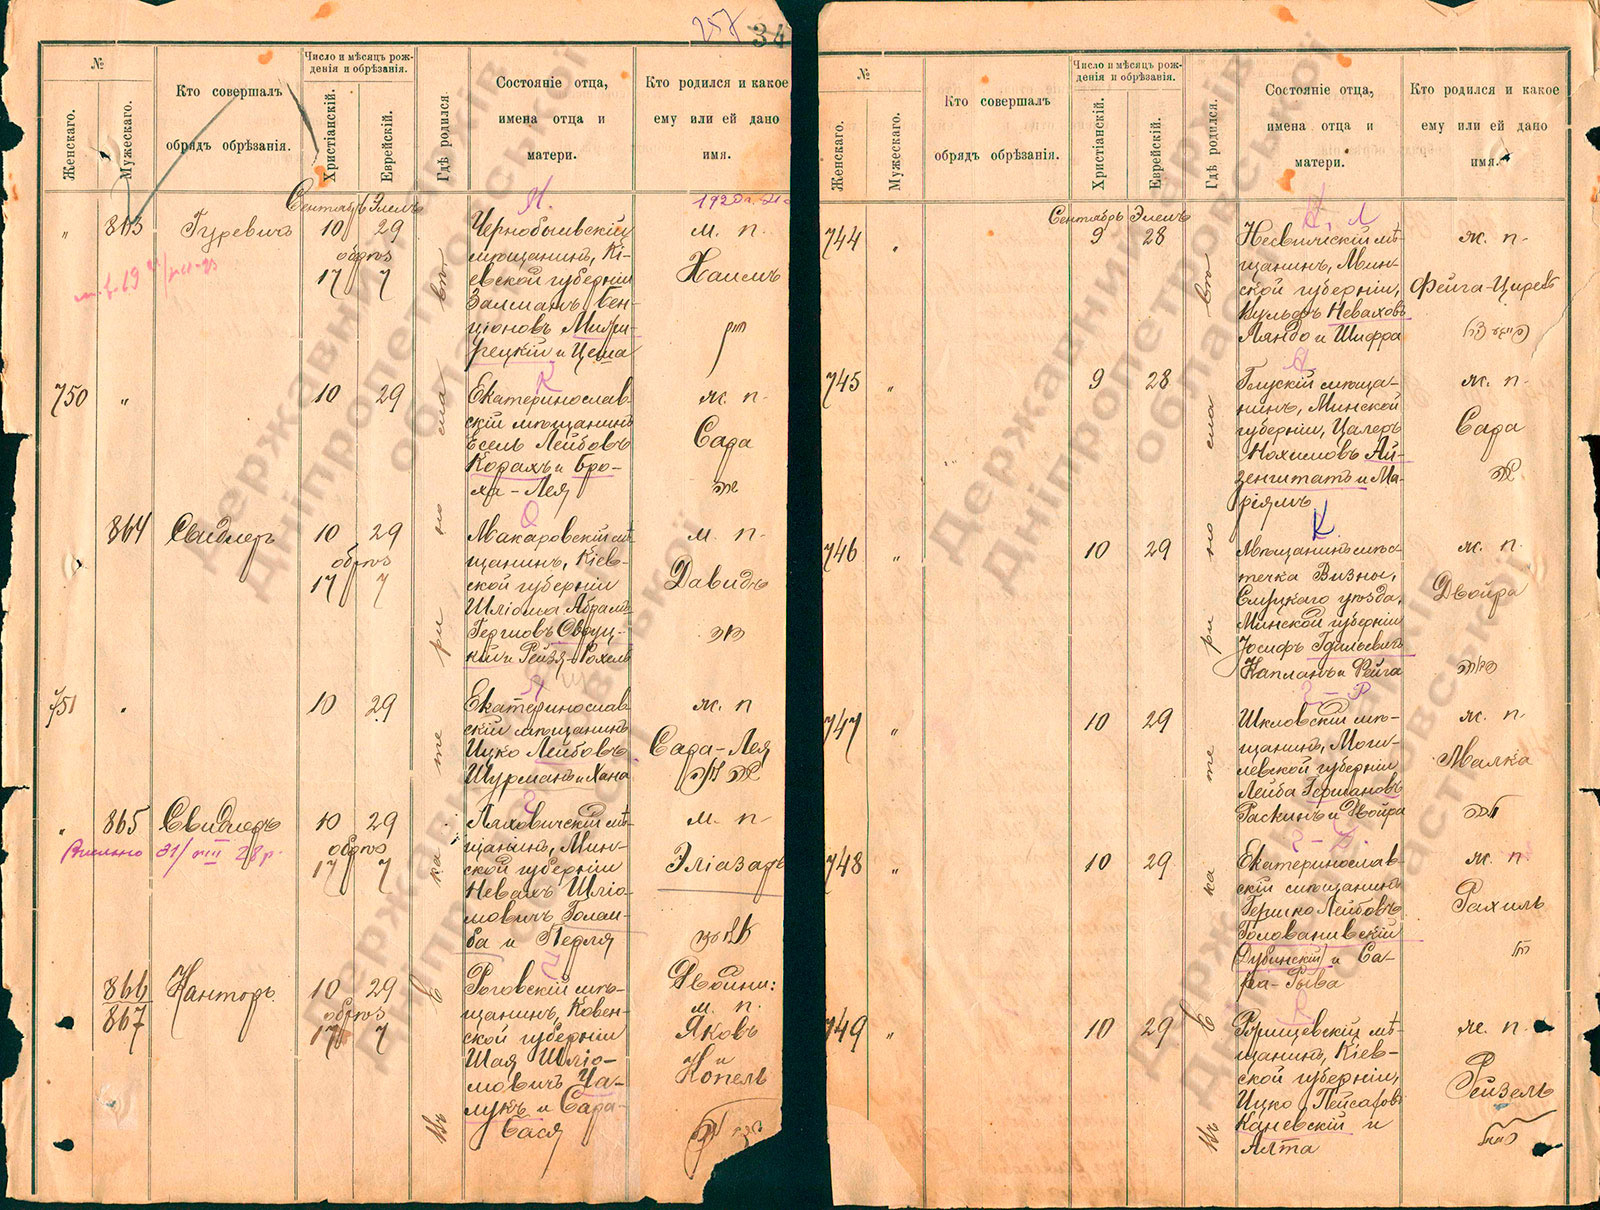 257 34
№
Женскаго.
Мужескаго.
Кто совершалъ
обрядъ обрѣзанія.
Число и мѣсяцъ рож-
денія и обрѣзанія.
Христіанскій.
Еврейскій.
Гдѣ родился.
Состояніе отца,
имена отца и
матери.
Кто родился и какое
ему или ей дано
имя.
Сентябрь Элелъ
" 863 Гуревичъ 10 29
обрѣз
17 7
Чернобыльскій
мѣщанинъ, Кі-
евской губерніи
Залманъ Бен-
ціоновъ
рецкій и Цеша
м. п.
Хаимъ
750 " 10 29
Екатеринослав-
скій мѣщанинъ
Есель Лейбовъ
Корахъ и Бро-
ха-Лея
ж. п.
Сара
864 Свидлеръ 10 29
обрѣз
17 7
Макаровскій мѣ-
щанинъ, Кіев-
ской губерніи
Шліома Абрамъ
и Рейзя-Рохель
м. п.
Давидъ
751 " 10 29
Екатеринослав-
скій мѣщанинъ
Ицко Лейбовъ
Шурманъ и Хана
ж. п
Сара-Лея
" 865 Свидлеръ 10 29
обрѣз
17 7
31/VIII 28 р.
Ляховичскій мѣ-
щанинъ, Мин-
ской губерніи
Невахъ Шліо-
мовичъ Голом-
ба и Перля
м. п
Эліазаръ
866
867
Канторъ 10 29
обрѣз
17 7
Роговскій мѣ-
щанинъ, Ковен-
ской губерніи
Шая Шліо-
мовичъ Ца-
лукъ и Сара-
Бася
Двойни:
м. п.
Яковъ
и
Копель
Въ Екатеринославѣ
№
Женскаго.
Мужескаго.
Кто совершалъ
обрядъ обрѣзанія.
Число и мѣсяцъ рож-
денія и обрѣзанія.
Христіанскій.
Еврейскій.
Гдѣ родился.
Состояніе отца,
имена отца и
матери.
Кто родился и какое
ему или ей дано
имя.
Сентябрь Элелъ
744 " 9 28
Несвижскій мѣ-
щанинъ, Мин-
ской губерніи,
Вульфъ Неваховъ
Лямбо и Шифра
ж. п.
Фейга-Цирель
745 " 9 28
Глускій мѣща-
нинъ, Минской
губерніи, Цалеръ
Нохимовъ Ай-
зенштатъ и Ма-
ріямъ
ж. п.
Сара
746 " 10 29
Мѣщанинъ мѣс-
течка Визны,
Слуцкаго уѣзда,
Минской губерніи
Іосифъ Гдильевичъ
Капланъ и Фейга
ж. п.
Двойра
747 " 10 29
Шкловскій мѣ-
щанинъ, Моги-
левской губерніи
Лейба Гершановъ
Раскинъ и Двойра
ж. п.
Малка
748 " 10 29
Екатеринослав-
скій мѣщанинъ
Гершко Лейбовъ
Голованивскій
(Дубинскій) и Са-
ра-Рыва
ж. п.
Рахиль
749 " 10 29
Ржищевскій мѣ-
щанинъ, Кіев-
ской губерніи,
Ицко Пейсаховъ
Каневскій и
Алта
ж. п.
Рейзель
Въ Екатеринославѣ
Державний архів
Дніпропетровської
області